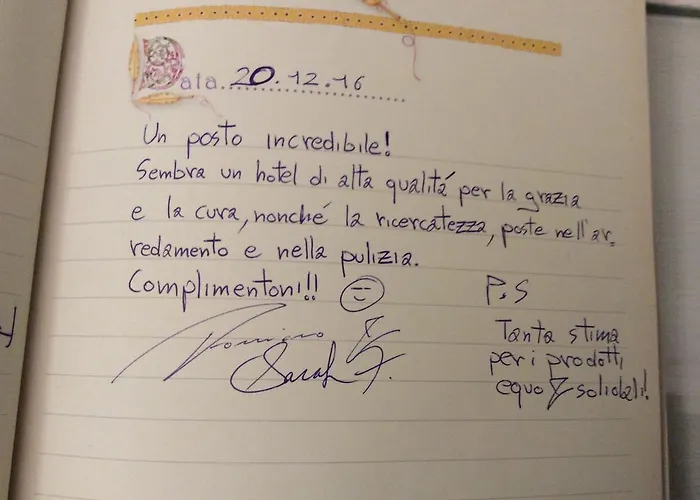 Data 20.12.16
Un posto incredibile!
Sembra un hotel di alta qualitá per la grazia
e la cura, nonché la ricercatezza, poste nell'ar,
redamento e nella pulizia.
Complimentoni!!
Sarah F.
P.S
Tanta stima
per i prodotti
equo solidali!